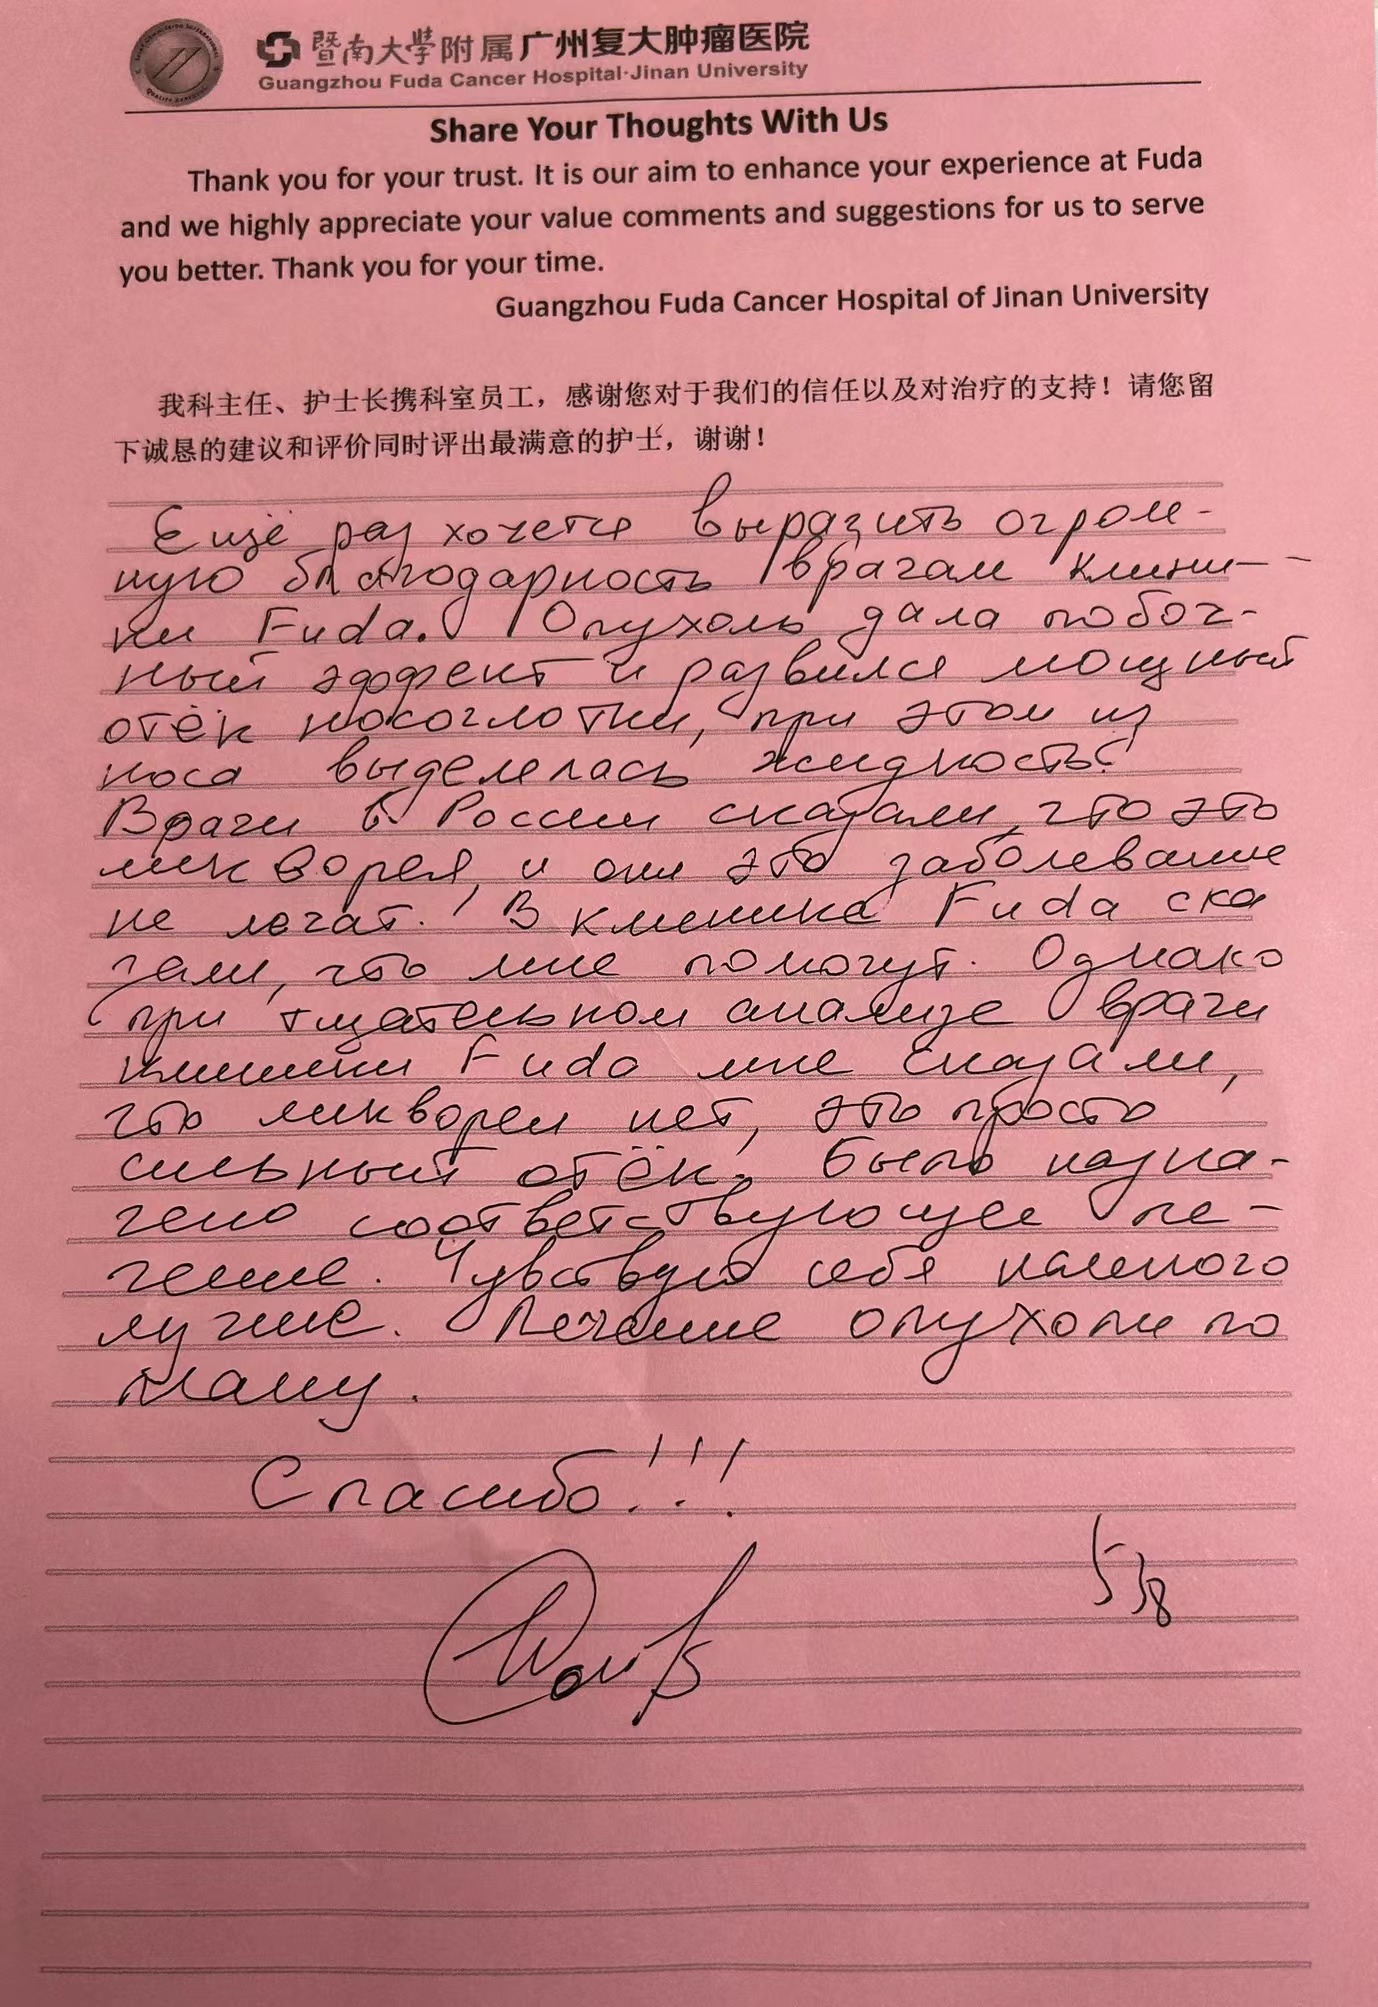 暨南大學附属广州复大肿瘤医院
Guangzhou Fuda Cancer Hospital·Jinan University
Share Your Thoughts With Us
Thank you for your trust. It is our aim to enhance your experience at Fuda
and we highly appreciate your value comments and suggestions for us to serve
you better. Thank you for your time.
Guangzhou Fuda Cancer Hospital of Jinan University
我科主任、护士长携科室员工，感谢您对于我们的信任以及对治疗的支持！请您留
下诚恳的建议和评价同时评出最满意的护士，谢谢！
Ещё раз хочется выразить огром-
ную благодарность врачам клини-
ки Fuda. Опухоль дала побоч-
ный эффект и развился мощный
отёк носоглотки, при этом из
носа выделелась жидкость.
Врачи в России сказали, что это
ликворея, и они это заболевание
не лечат. В клинике Fuda ска
зали, что мне помогут. Однако
при тщательном анализе врачи
клиники Fuda мне сказали,
что ликвореи нет, это просто
сильный отёк. Было назна-
чено соответствующее ле-
чение. Чувствую себя намного
лучше. Лечение опухоли по
плану.
Спасибо!!!